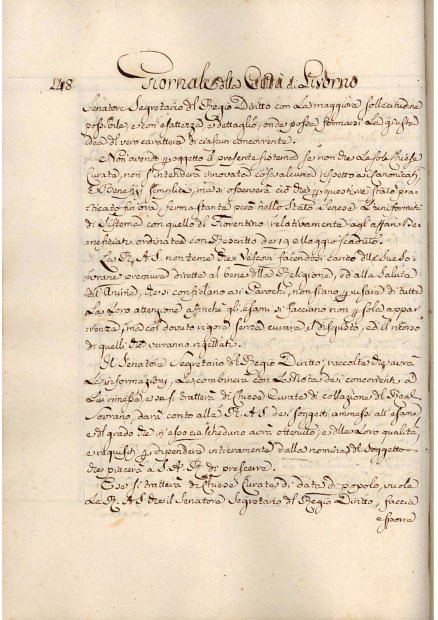 248 Giornale della Città di Livorno
Senatore Segretario del Regio Diritto con la maggiore sollecitudine
possibile, e con esattezza, e dettaglio, onde possa formarsi la giusta
idea del vero carattere di ciascun concorrente.
Non avendo per oggetto il presente sistema se non che le sole Chiese
Curate, non s'intenderà innovata cosa alcuna rispetto ai Canonicati,
e Benefizi semplici, ma si osserverà ciò che per queste è stato pra-
ticato fin'ora ferma stante però nello Stato Senese l'uniformità
di Sistema con quello di Fiorentino relativamente agl'affari Be-
neficiati ordinata con Rescritto de' 19 Maggio scaduto.
La R. A. S. non teme che i Vescovi facendosi carico delle sue So-
vrane premure dirette al bene della Religione, ed alla salute
dell'Anime, che si confidano ai Parochi, non siano per usare di tutta
la loro attenzione affinchè gli esami si facciano non per sola appa-
renza, ma col dovuto rigore senza curare il disgusto, ed il
di quelli che verranno rigettati.
Il Senatore Segretario del Regio Diritto, raccolte che avrà
le informazioni, le combinerà con le Note dei concorrenti a
Lui rimesse, e se si tratterà di Chiese Curate di collazione del Real
Sovrano, darà conto alla R. A. S. dei soggetti ammessi all'esame,
e del grado che in esso ciascheduno avrà ottenuto, e delle loro qualità,
e requisiti, per dipendere interamente dalla nomina del Soggetto
che piacerà a S. A. R. di prescerre.
E se si tratterà di Chiese Curate di data di popolo, vuole
La R. A. S. che il Senatore Segretario del Regio Diritto, faccia
esporre